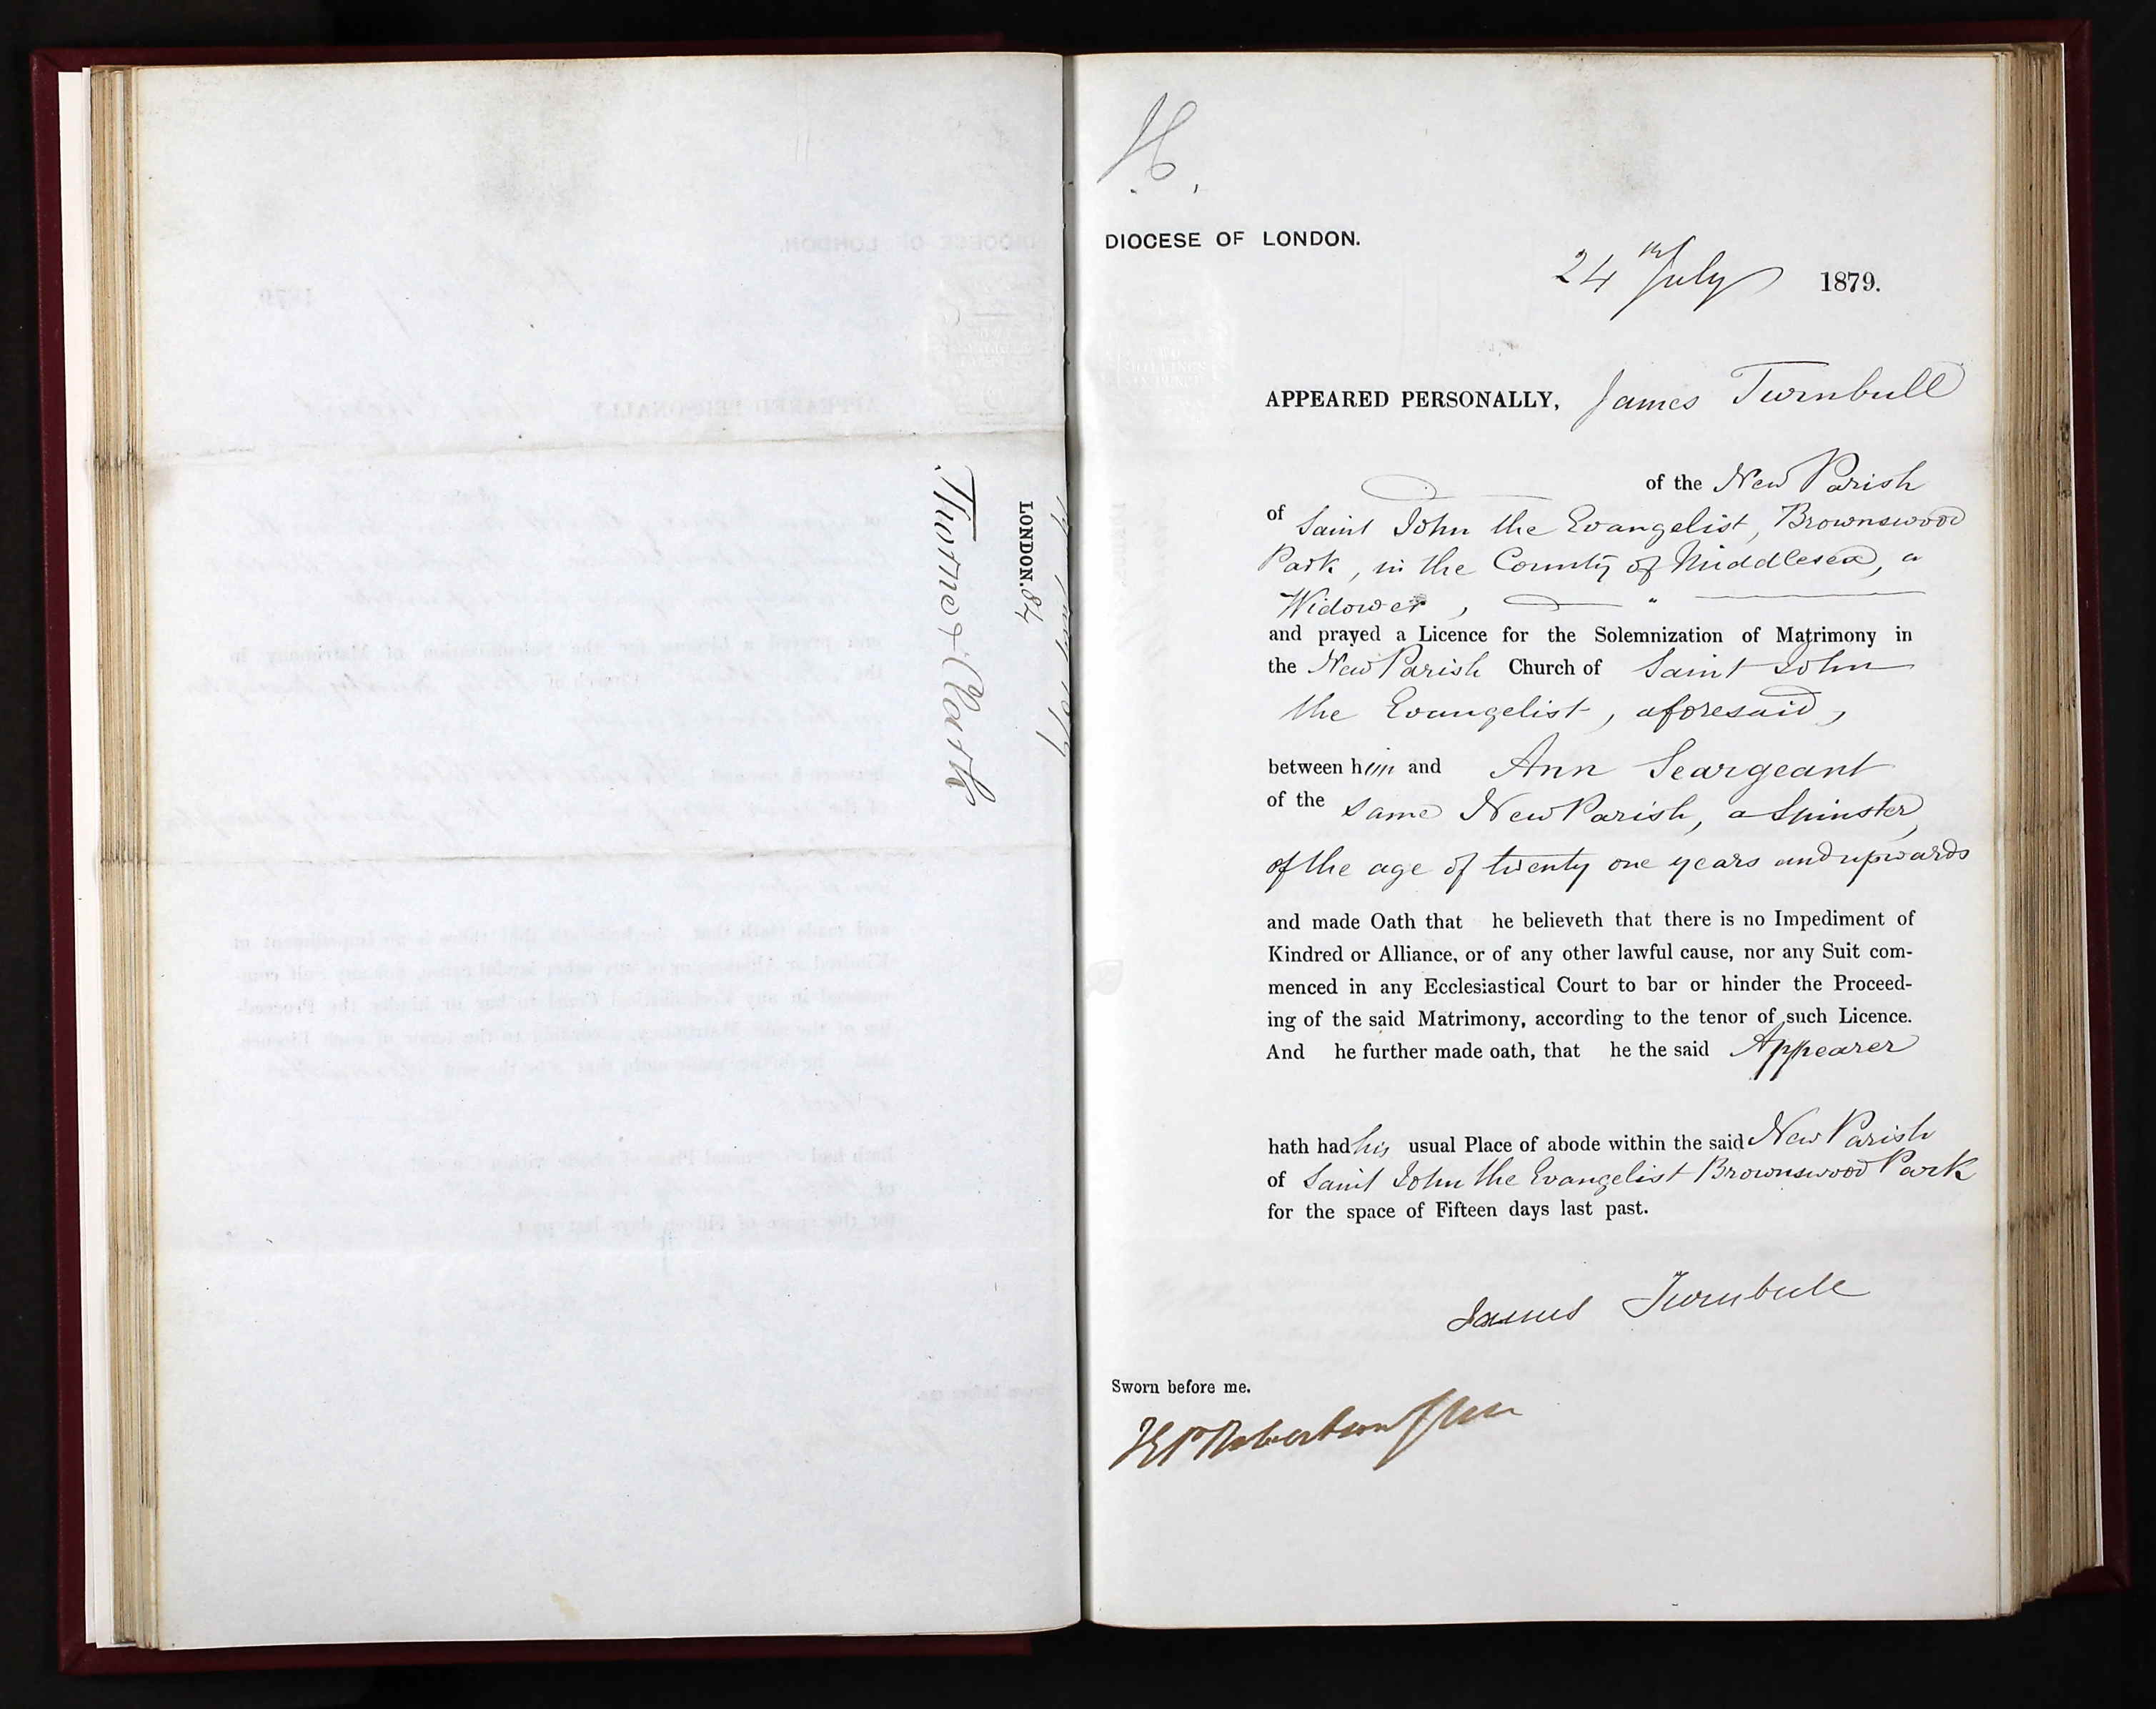 LONDON.84
Turner & Ruth
H.
DIOCESE OF LONDON.
24th July 1879.
APPEARED PERSONALLY, James Turnbull
of the New Parish
of Saint John the Evangelist, Brownswood
Park, in the County of Middlesex, a
Widower, "
and prayed a Licence for the Solemnization of Matrimony in
the New Parish Church of Saint John
the Evangelist, aforesaid,
between him and Ann Seargeant
of the same New Parish, a Spinster,
of the age of twenty one years and upwards
and made Oath that he believeth that there is no Impediment of
Kindred or Alliance, or of any other lawful cause, nor any Suit com-
menced in any Ecclesiastical Court to bar or hinder the Proceed-
ing of the said Matrimony, according to the tenor of such Licence.
And he further made oath, that he the said Appearer
hath had his usual Place of abode within the said New Parish
of Saint John the Evangelist Brownswood Park
for the space of Fifteen days last past.
James Turnbull
Sworn before me.